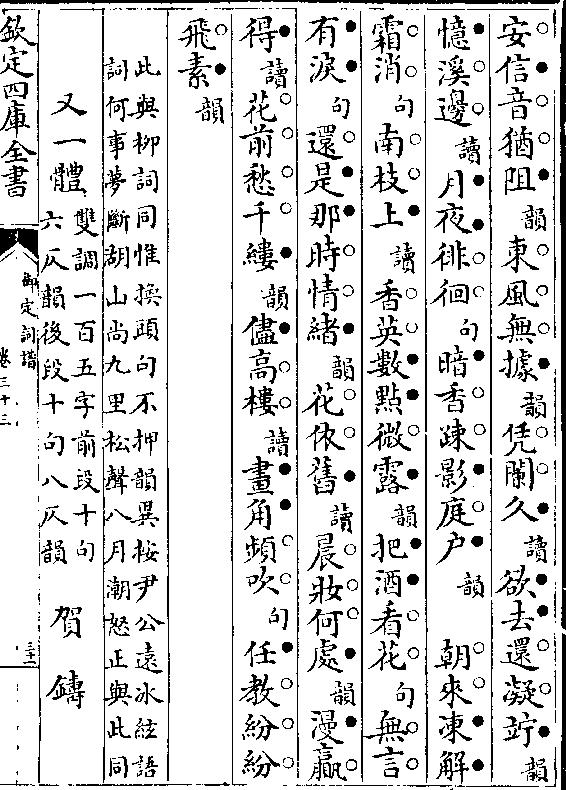 安信音猶阻韻東風無據韻凭闌久讀欲去還凝竚韻
憶溪邊讀月夜徘徊句暗香疎影庭户韻　朝來凍解
霜消句南枝上讀香英數點微露韻把酒看花句無言
有淚句還是那時情緒韻花依舊讀晨妝何處韻漫贏
得讀花前愁千縷韻儘高樓讀畫角頻吹句任教紛紛
飛素韻
此與柳詞同惟換頭句不押韻異按尹公遠冰絃語
詞何事夢斷胡山尚九里松聲八月潮怒正與此同
又一體雙調一百五字前段十句
六仄韻後段十句八仄韻　賀鑄
欽定四庫全書
御定詞譜
卷三十三